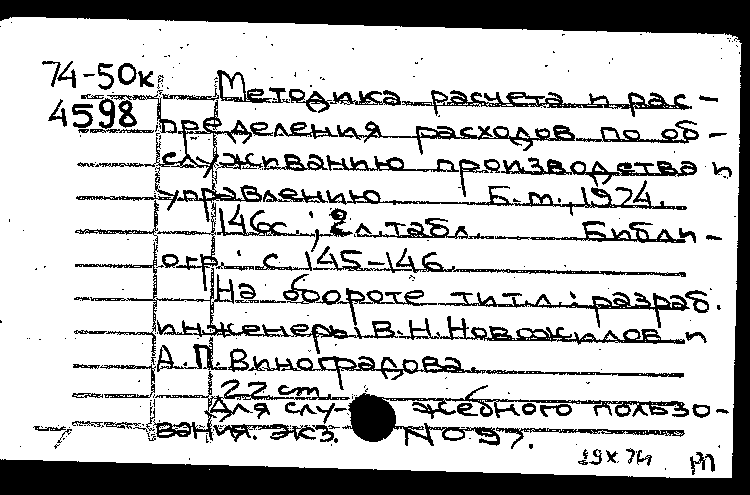 74-50к
4598
Методика расчета и рас-
пределения расходов по об-
служиванию производства и
управлению. Б.м., 1974.
146с.; 2л.табл. Библи-
огр.: с 145-146.
На обороте тит.л.: разраб.
инженеры В.Н.Новожилов и
А.П.Виноградова.
22 cm.
Для слу- жебного пользо-
вания. экз. N 097.
29 X 74 РП